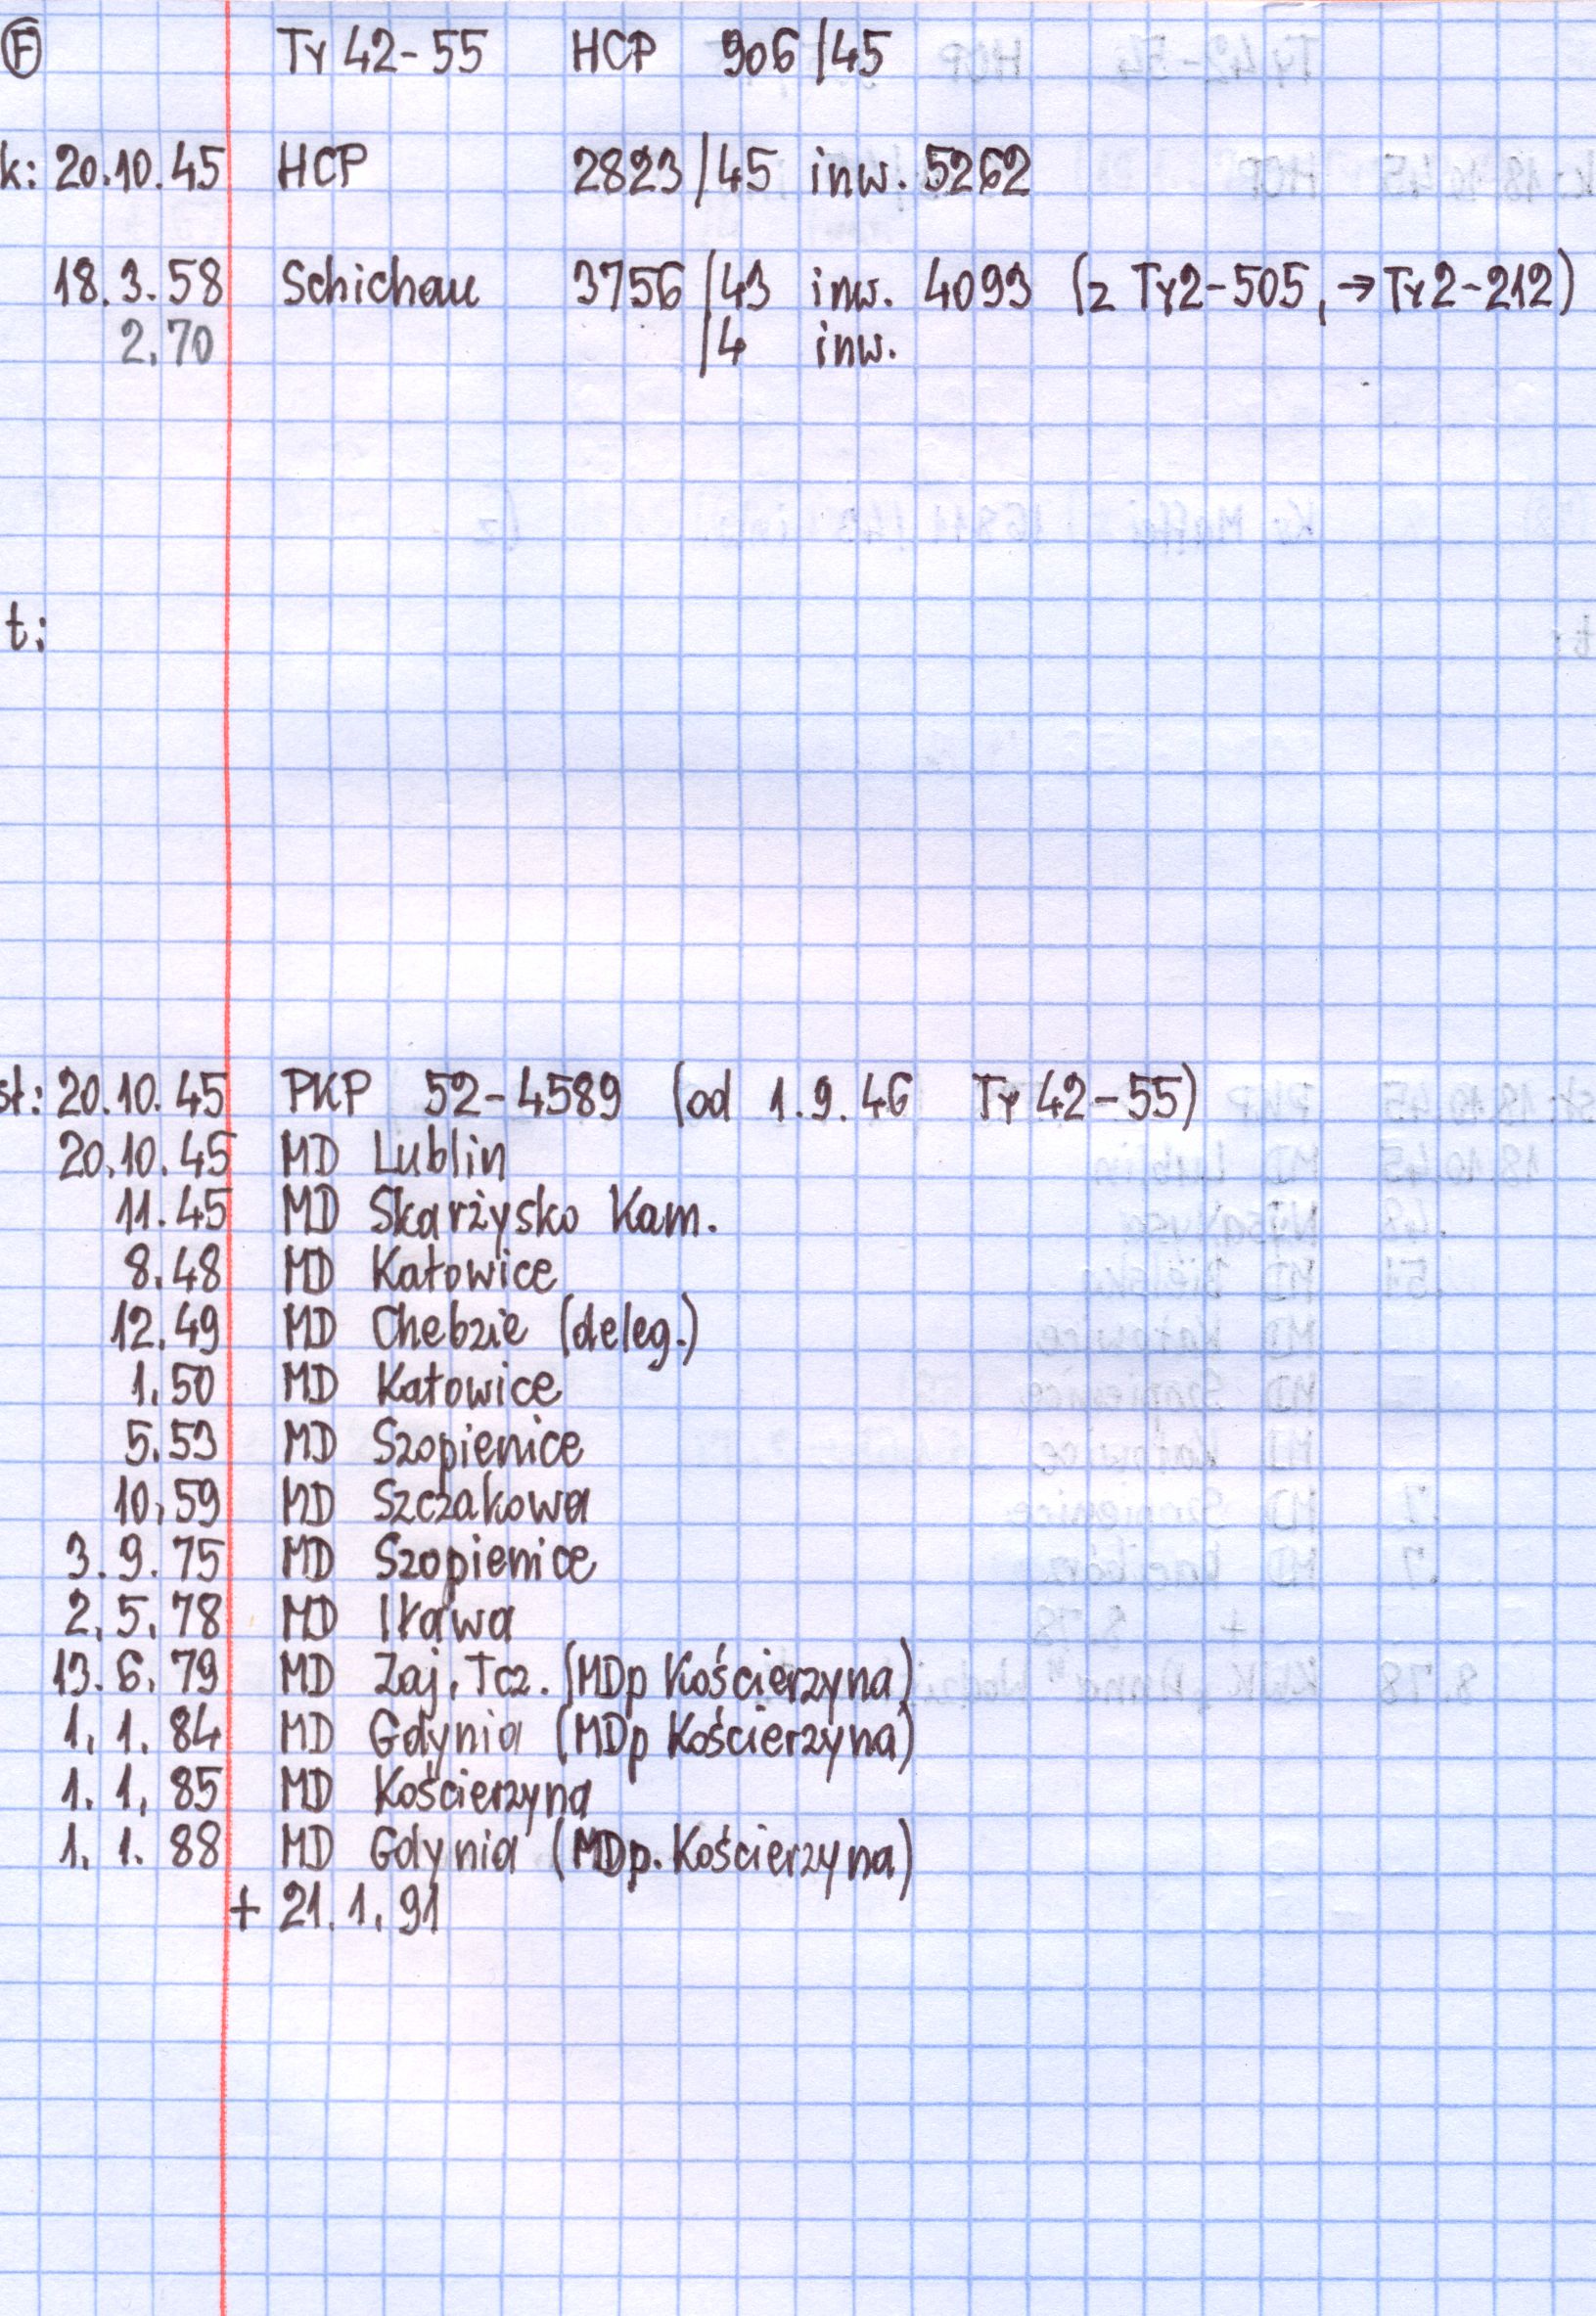 F Ty 42-55 HCP 906/45
k: 20.10.45 HCP 2823/45 inw. 5262
18.3.58 Schichau 3756/43 inw. 4093 (z Ty2-505, → Ty2-212)
2.70 /4 inw.
t:
st: 20.10.45 PKP 52-4589 (od 1.9.46 Ty 42-55)
20.10.45 MD Lublin
11.45 MD Skarżysko Kam.
8.48 MD Katowice
12.49 MD Chebzie (deleg.)
1.50 MD Katowice
5.53 MD Szopienice
10.59 MD Szczakowa
3.9.75 MD Szopienice
2.5.78 MD Iława
13.6.79 MD Zaj. Tcz. (MDp Kościerzyna)
1.1.84 MD Gdynia (MDp Kościerzyna)
1.1.85 MD Kościerzyna
1.1.88 MD Gdynia (MDp. Kościerzyna)
+ 21.1.91